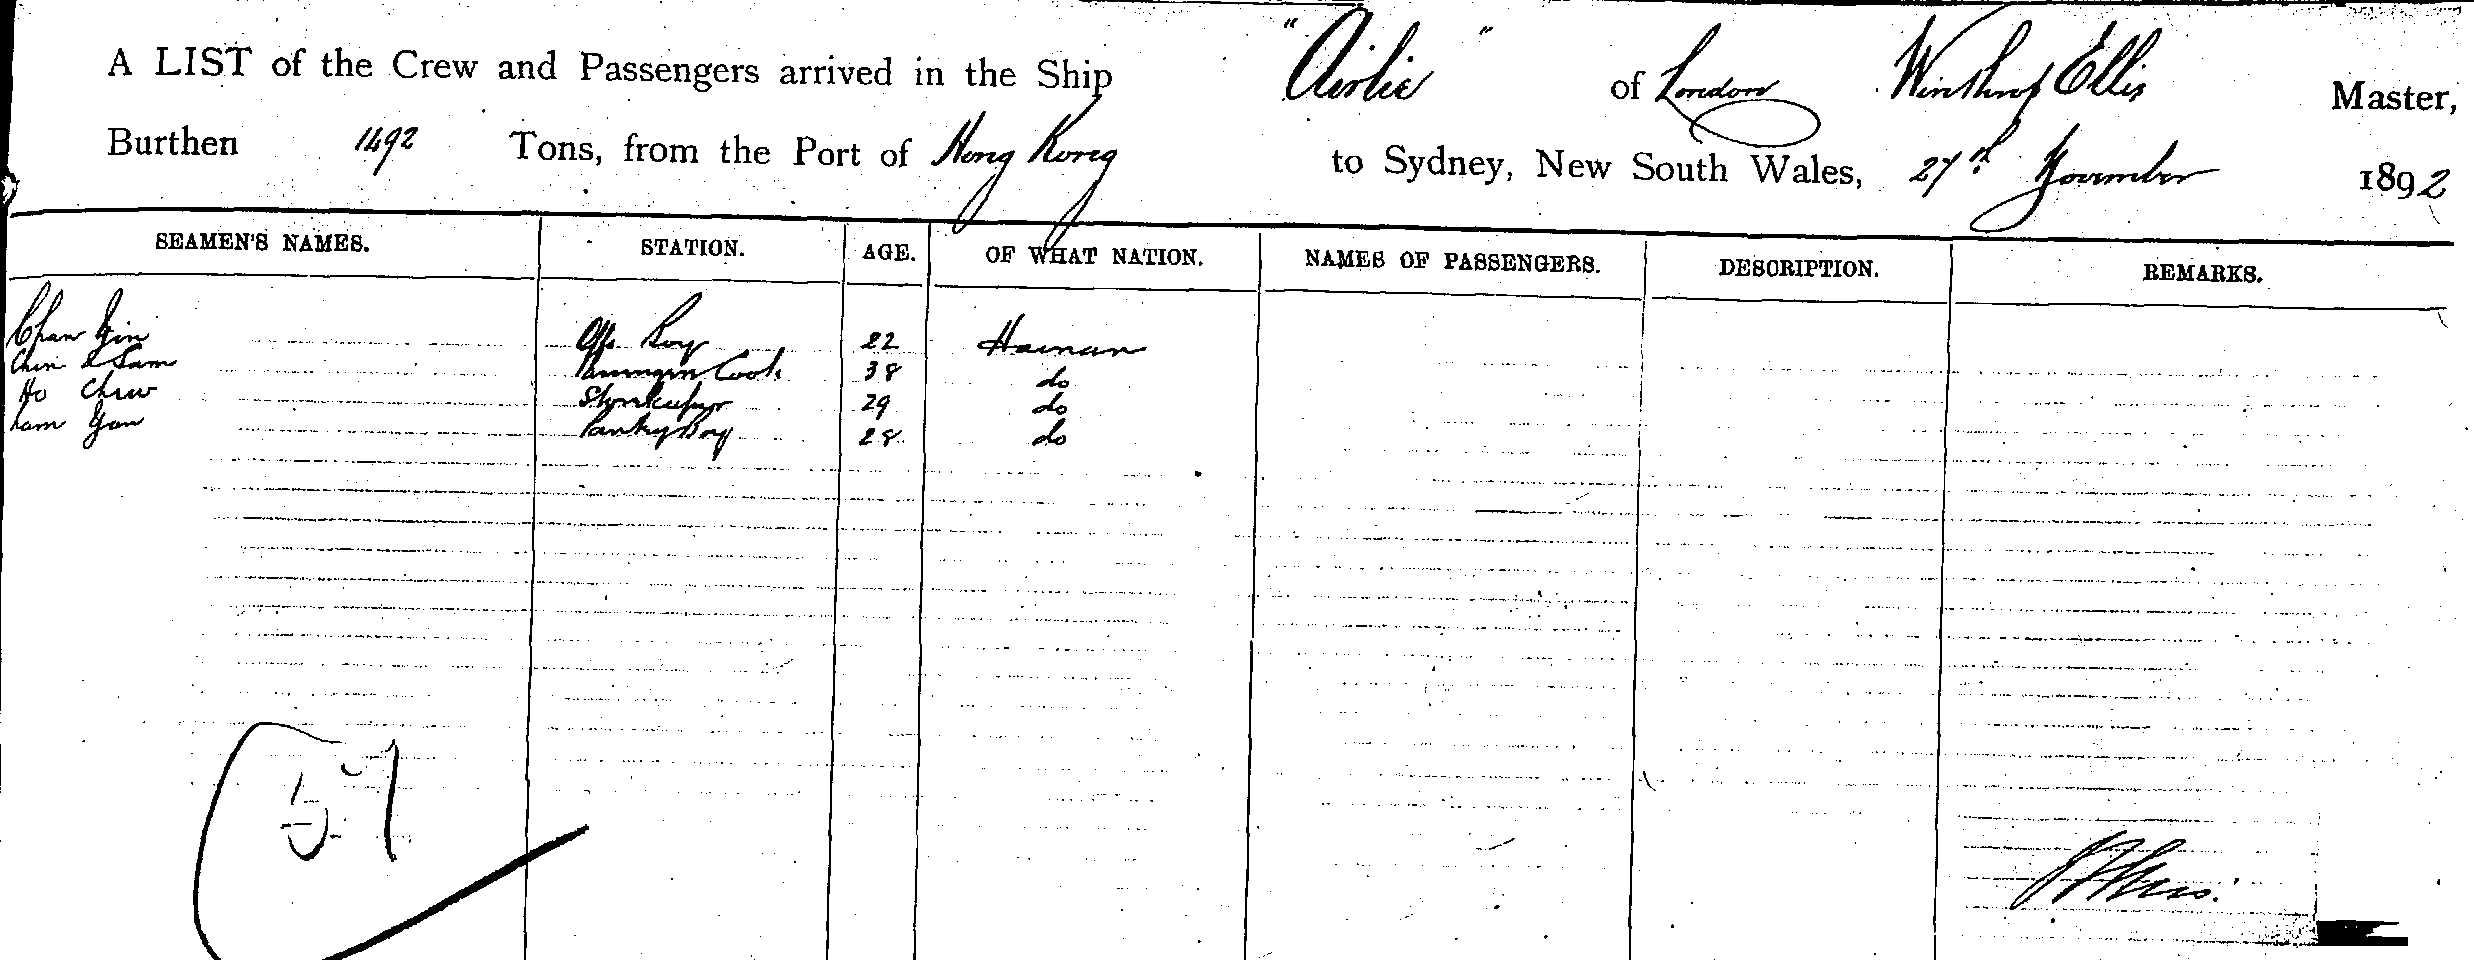 A LIST of the Crew and Passengers arrived in the Ship "Airlie" of London Winthrop Ellis Master,
Burthen 1492 Tons, from the Port of Hong Kong to Sydney, New South Wales, 27th November 1892
SEAMEN'S NAMES. STATION. AGE. OF WHAT NATION. NAMES OF PASSENGERS. DESCRIPTION. REMARKS.
Chan Yin Offs Boy 22 Hainan
Chin Sam Passenger Cook 38 do
Ho Chew Storekeeper 29 do
Lam Yan Pantry Boy 28 do
51